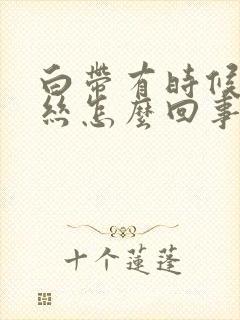 白帶有時候
絲怎麼回事
十个蓮蓬